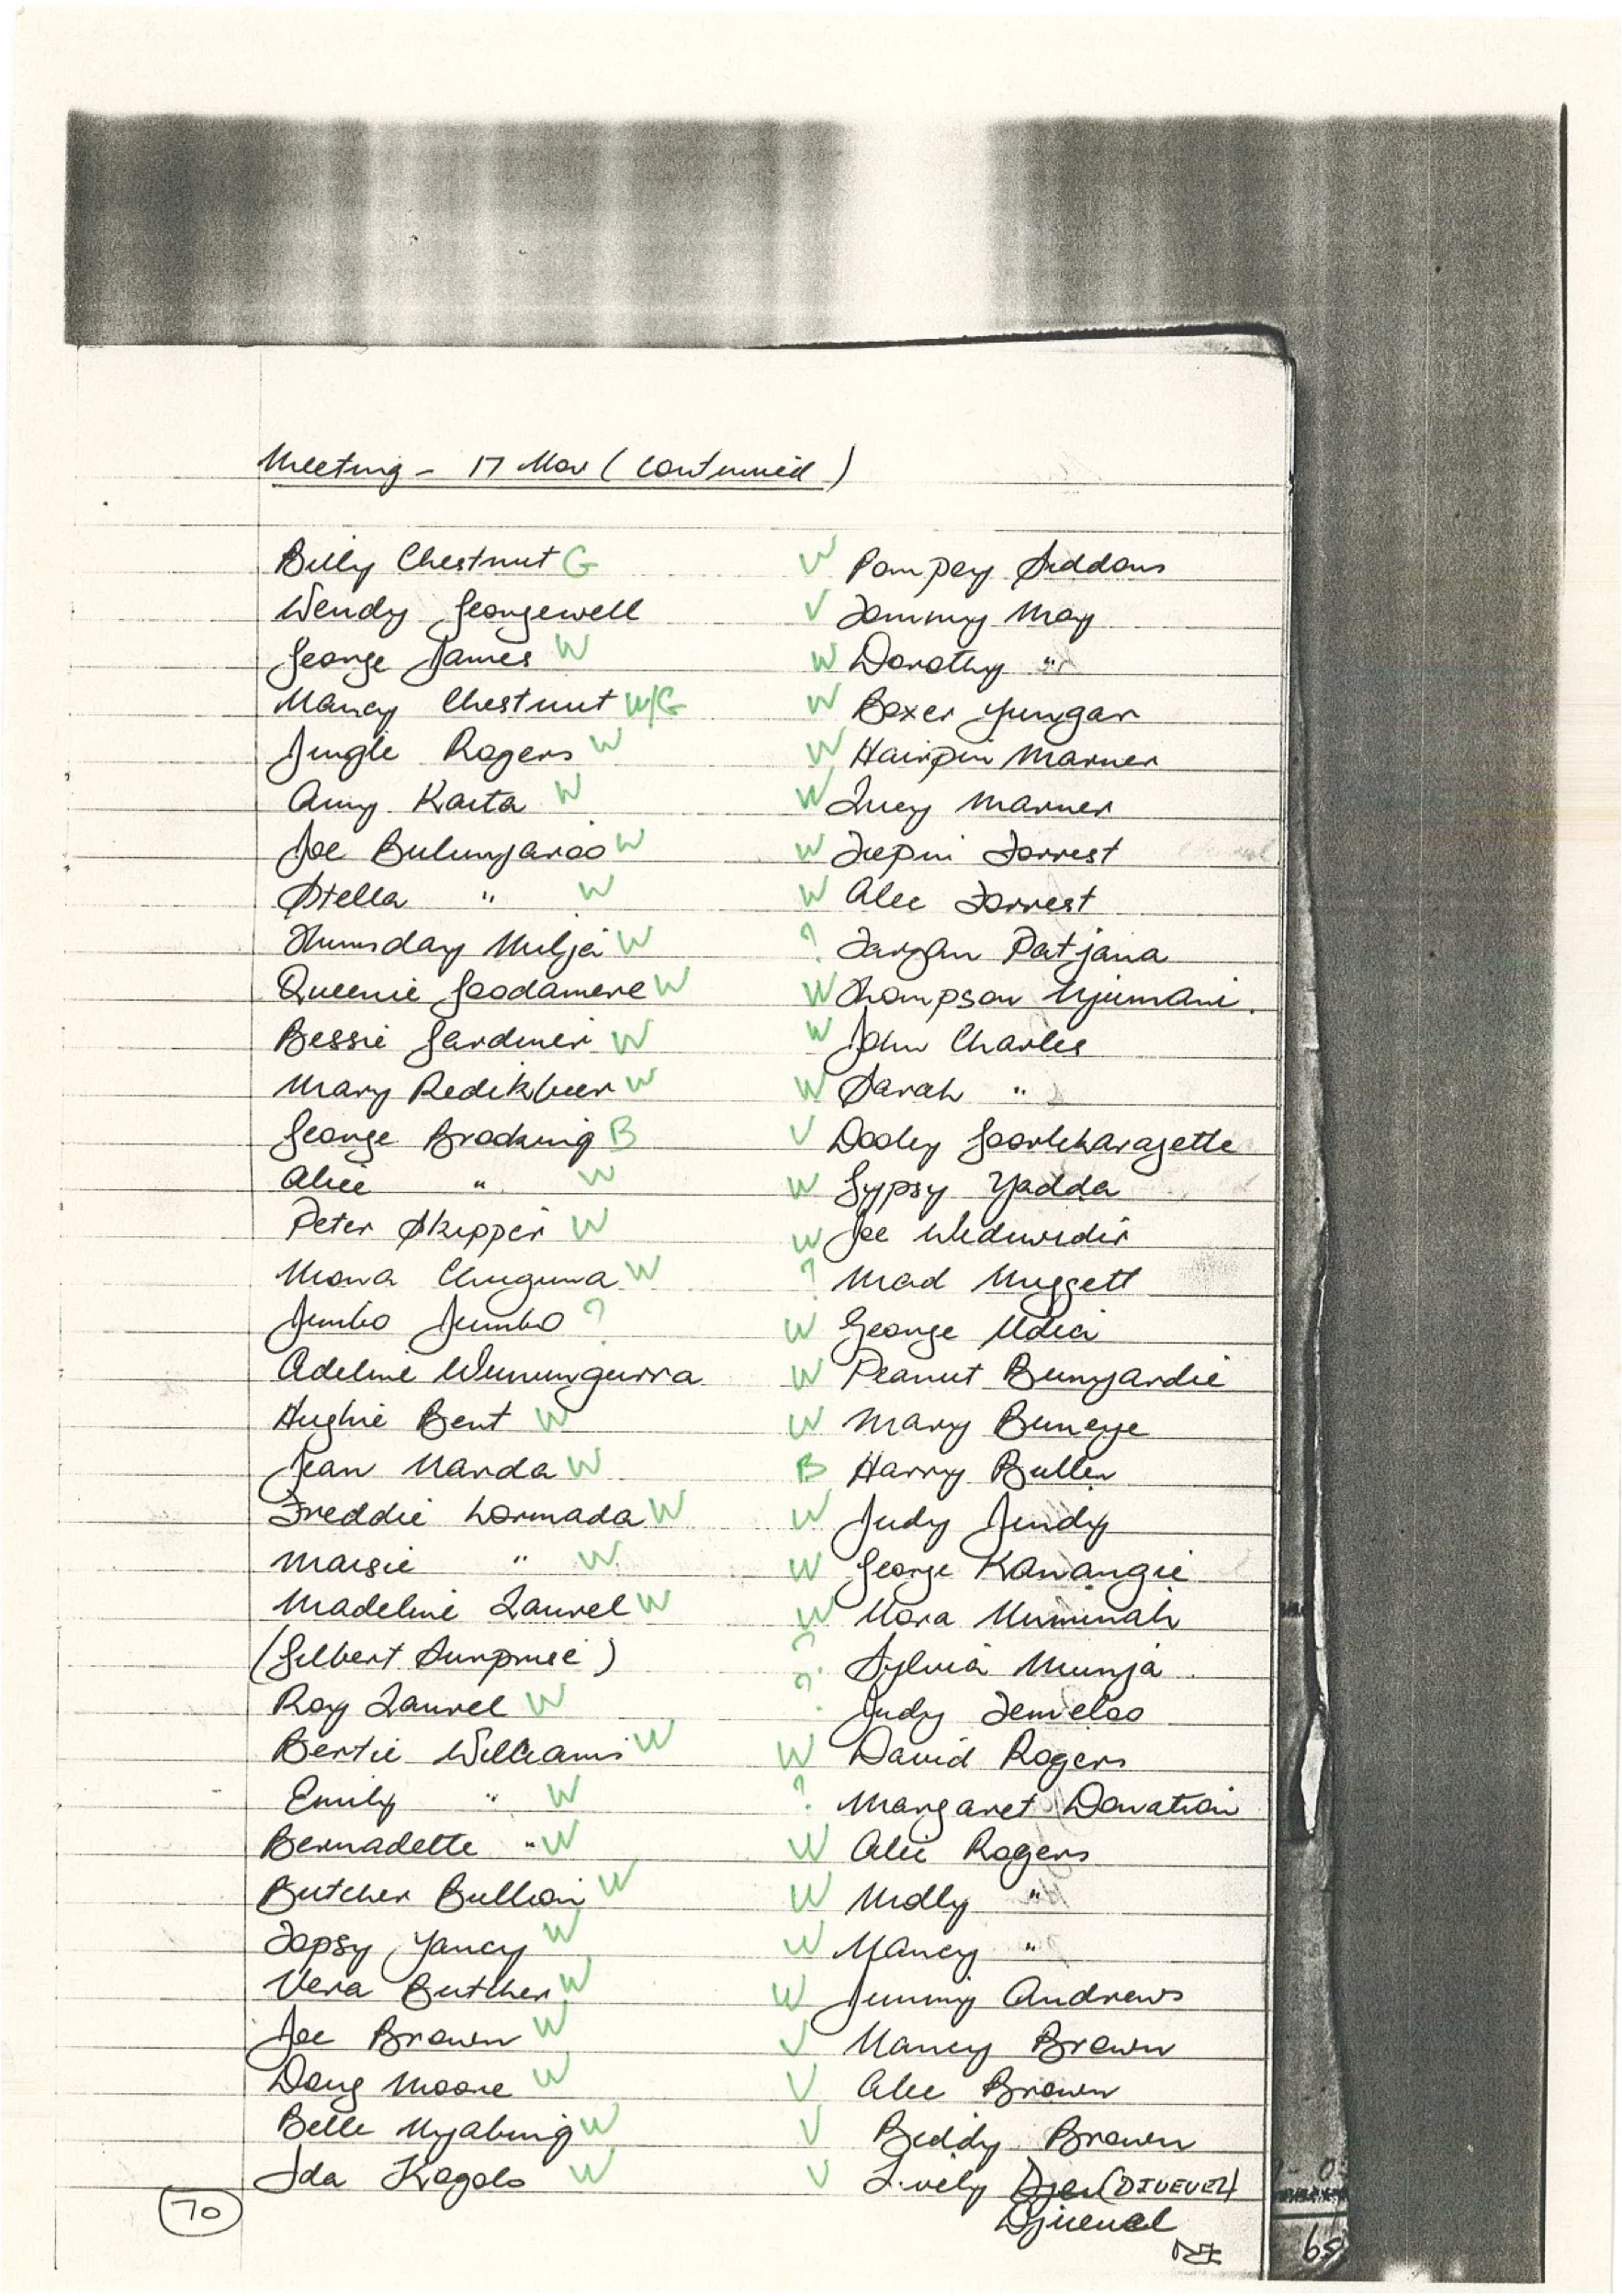 Meeting - 17 Nov (Continued)
Billy Chestnut G
Wendy Georgewell
George James W
Nancy Chestnut W/G
Jingle Rogers W
Amy Karta W
Joe Bulunjaroo W
Stella " W
Thursday W
Queenie Goodamere W
Bessie Gardiner W
Mary Redikbeer W
George Brooking B
Alice " W
Peter Skipper W
Mona Chuguna W
Jumbo Jumbo ?
Adeline Wunungurra
Hughie Bent W
Jean Nanda W
Freddie Lormada W
Maisie " W
Madeline Laurel W
(Gilbert Surprise)
Roy Laurel W
Bertie Williams W
Emily " W
Bernadette " W
Butcher Bullion W
Topsy Yancy W
Vera Butcher W
Joe Brown W
Doug Moore W
Belle Nyabing W
Ida Kogolo W
70
W Pompey Siddons
V Tommy May
W Dorothy "
W Boxer Yungar
W Hairpin Warner
W Lucy Warner
W Forrest
W Alec Forrest
? Tarzan Patjana
W Thompson Njumani
W John Charles
W Sarah "
V Dooley
W Gypsy Yadda
W Joe
? Mad Nuggett
W George Udia
W Peanut Bunjardie
W Mary Buneye
B Harry Butler
W Judy Jundy
W George Kawangie
W Nora Numinah
? Sylvia Munja
? Judy
W David Rogers
? Margaret Donation
W Alic Rogers
W Molly "
W Nancy "
W Jimmy Andrews
V Nancy Brown
V Alec Brown
V Biddy Brown
V Lively (DJUEUEL)
Djueuel
65